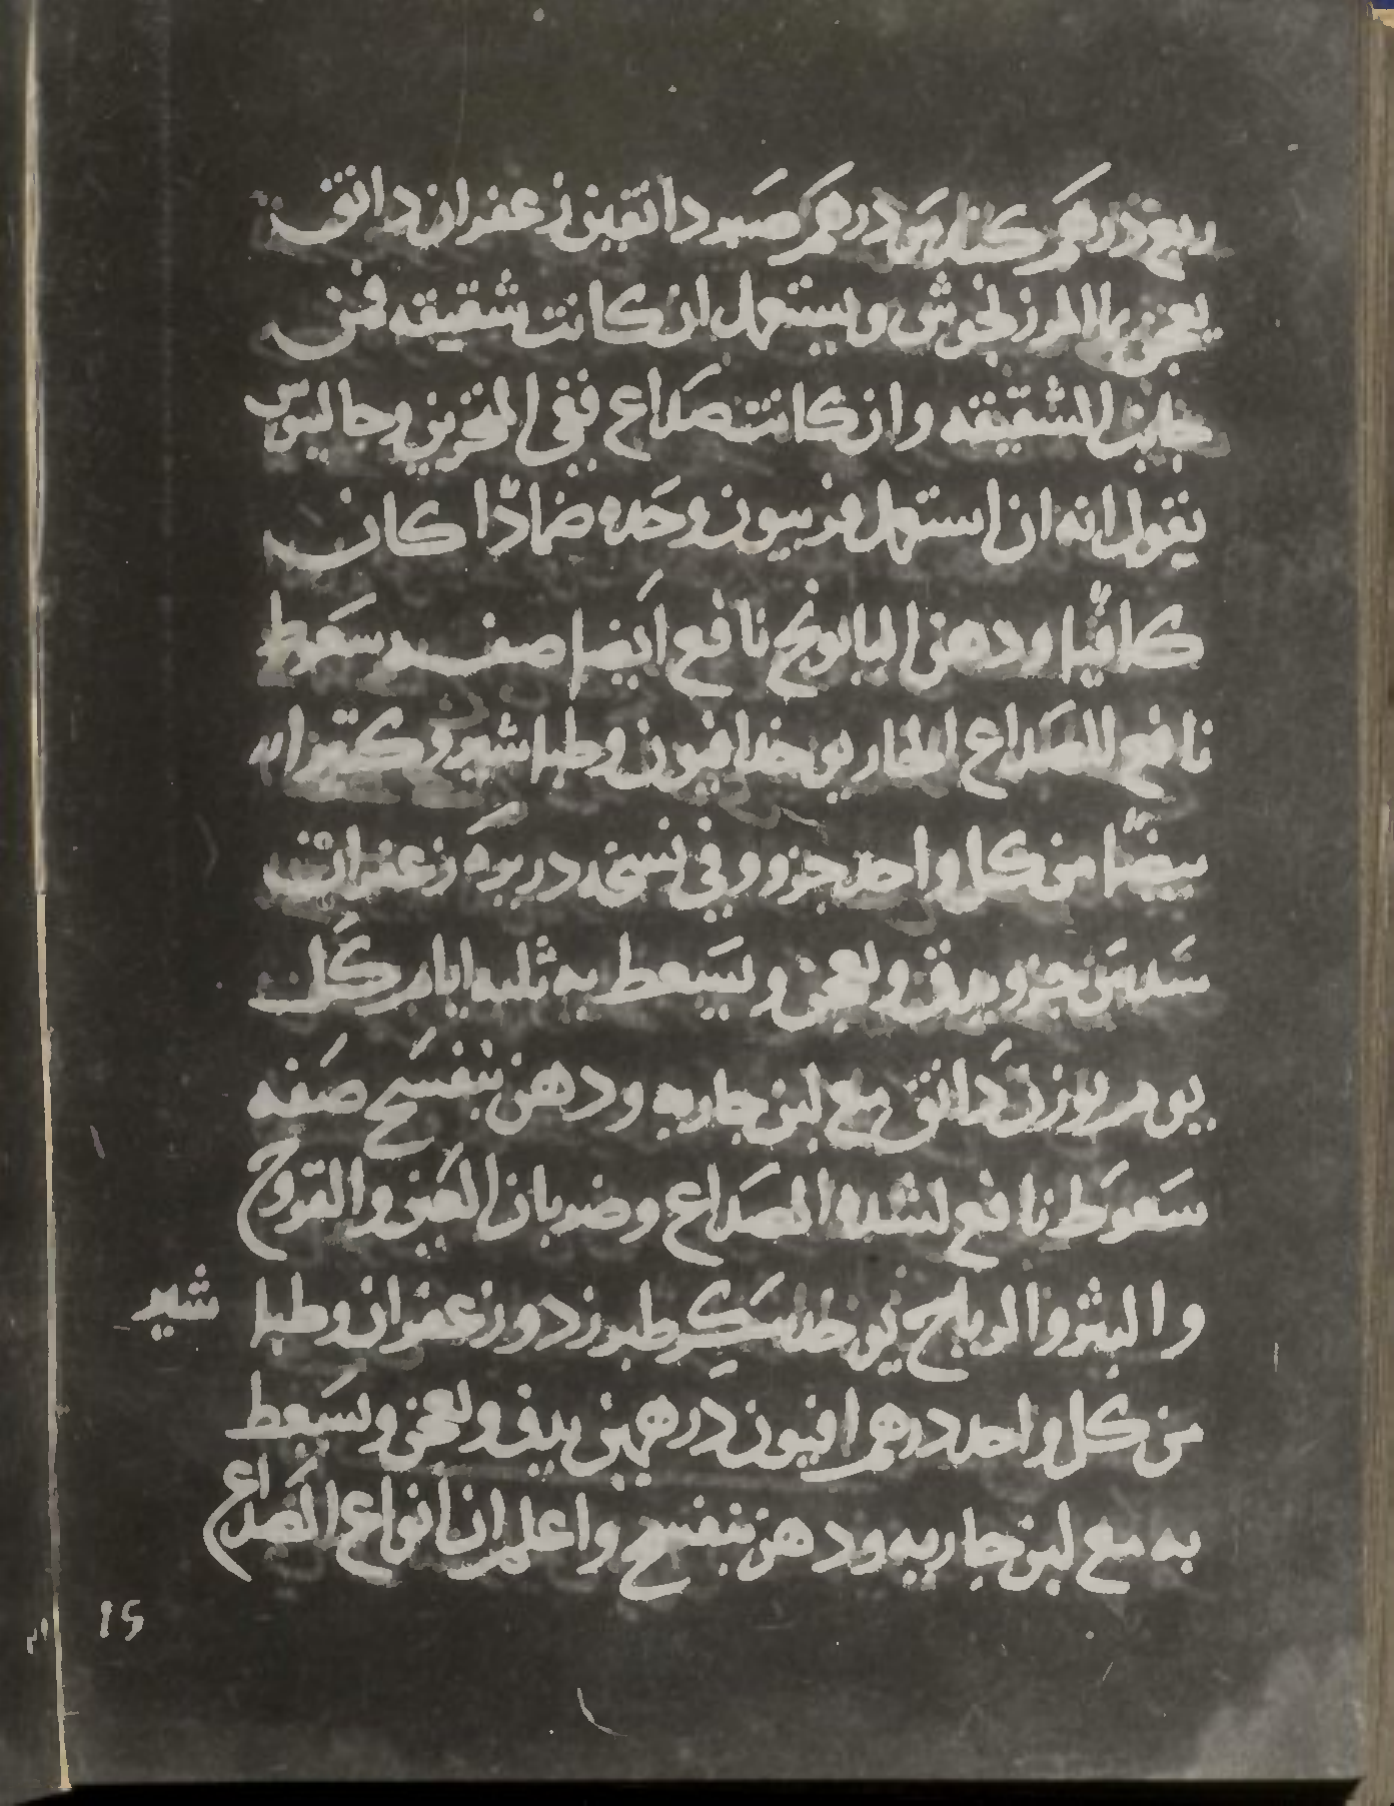 ربع درهم كندس درهم صبر دانقين زعفران دانق
يعجن بما المرزنجوش ويستعمل ان كانت شقيقه فمن
جانب الشقيقه وان كانت صداع ففي المنخرين وجالينوس
يقول انه ان استعمل فربيون وحده ضمادًا كان
كافيًا ودهن البابونج نافع ايضا صفه سعوط
نافع للصداع الحار يوخذ افيون وطباشير وكثيرا
بيضًا من كل واحد جزو وفي نسخه زعفران
سدس جزو يدق ويعجن ويسعط به ثلثه ايام كل
يوم بوزن دانق مع لبن جاريه ودهن بنفسج صفه
سعوط نافع لشده الصداع وضربان العين والقروح
والبثر والريح يوخذ سكر طبرزد وزعفران وطبا
شير
من كل واحد درهم افيون درهمين يدق ويعجن ويسعط
به مع لبن جاريه ودهن بنفسج واعلم ان انواع الصداع
15